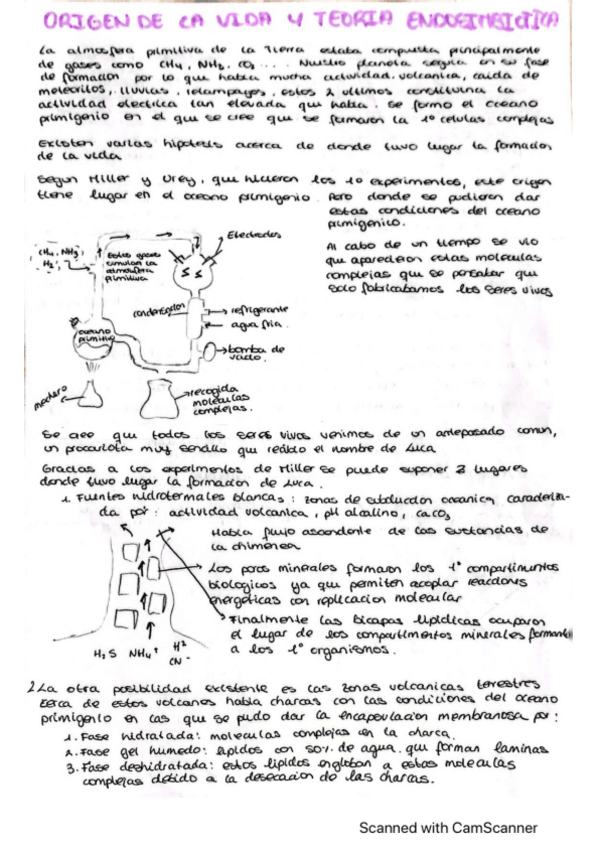 ORIGEN DE LA VIDA Y TEORIA ENDOSIMBIOTICA
La atmosfera primitiva de la Tierra estaba compuesta principalmente
de gases como CH4, NH3, CO2.... Nuestro planeta seguia en su fase
de formacion por lo que habia mucha actividad volcanica, caida de
meteoritos, lluvias, relampagos, estos 2 ultimos constituina la
actividad electrica tan elevada que habia. Se formo el oceano
primigenio en el que se cree que se formaron la 1º celulas complejas
Existen varias hipotesis acerca de donde tuvo lugar la formacion
de la vida
Segun Miller y Urey, que hicieron los 10 experimentos, este origen
tiene lugar en el oceano primigenio. Pero donde se pudieron dar
estas condiciones del oceano
primigenico.
Al cabo de un tiempo se vio
que aparecieron estas moleculas
complejas que se pensaba que
solo fabricabamos los seres vivos
Electrodos
(CH4, NH3)
H2,
Estos gases
simulan la
atmosfera
primitiva
condensador
refrigerante
agua fria.
oceano
primitivo
bomba de
vacio.
mechero
recogida
moleculas
complejas.
Se cree que todos los seres vivos venimos de un antepasado comun,
un procariota muy sencillo que recibio el nombre de Luca
Gracias a los experimentos de Miller se puede suponer 2 lugares
donde tuvo lugar la formacion de Luca.
1. Fuentes hidrotermales blancas: zonas de subduccion oceanica, caracteriza-
da por: actividad volcanica, pH alcalino, CaCO3
Habia flujo ascendente de las sustancias de
la chimenea
Los poros minerales formaron los 1º compartimentos
biologicos ya que permiten acoplar reacciones
energeticas con replicacion molecular
Finalmente las bicapas lipidicas ocuparon
el lugar de los compartimentos minerales formando
a los 1º organismos.
H2S NH4+ H2
CN-
2. La otra posibilidad existente es las zonas volcanicas terrestres
cerca de estos volcanes habia charcas con las condiciones del oceano
primigenio en las que se pudo dar la encapsulacion membranosa por:
1. Fase hidratada: moleculas complejas en la charca.
2. Fase gel humedo: lipidos con 50% de agua que forman laminas
3. Fase deshidratada: estos lipidos engloban a estas moleculas
complejas debido a la desecacion de las charcas.
Scanned with CamScanner